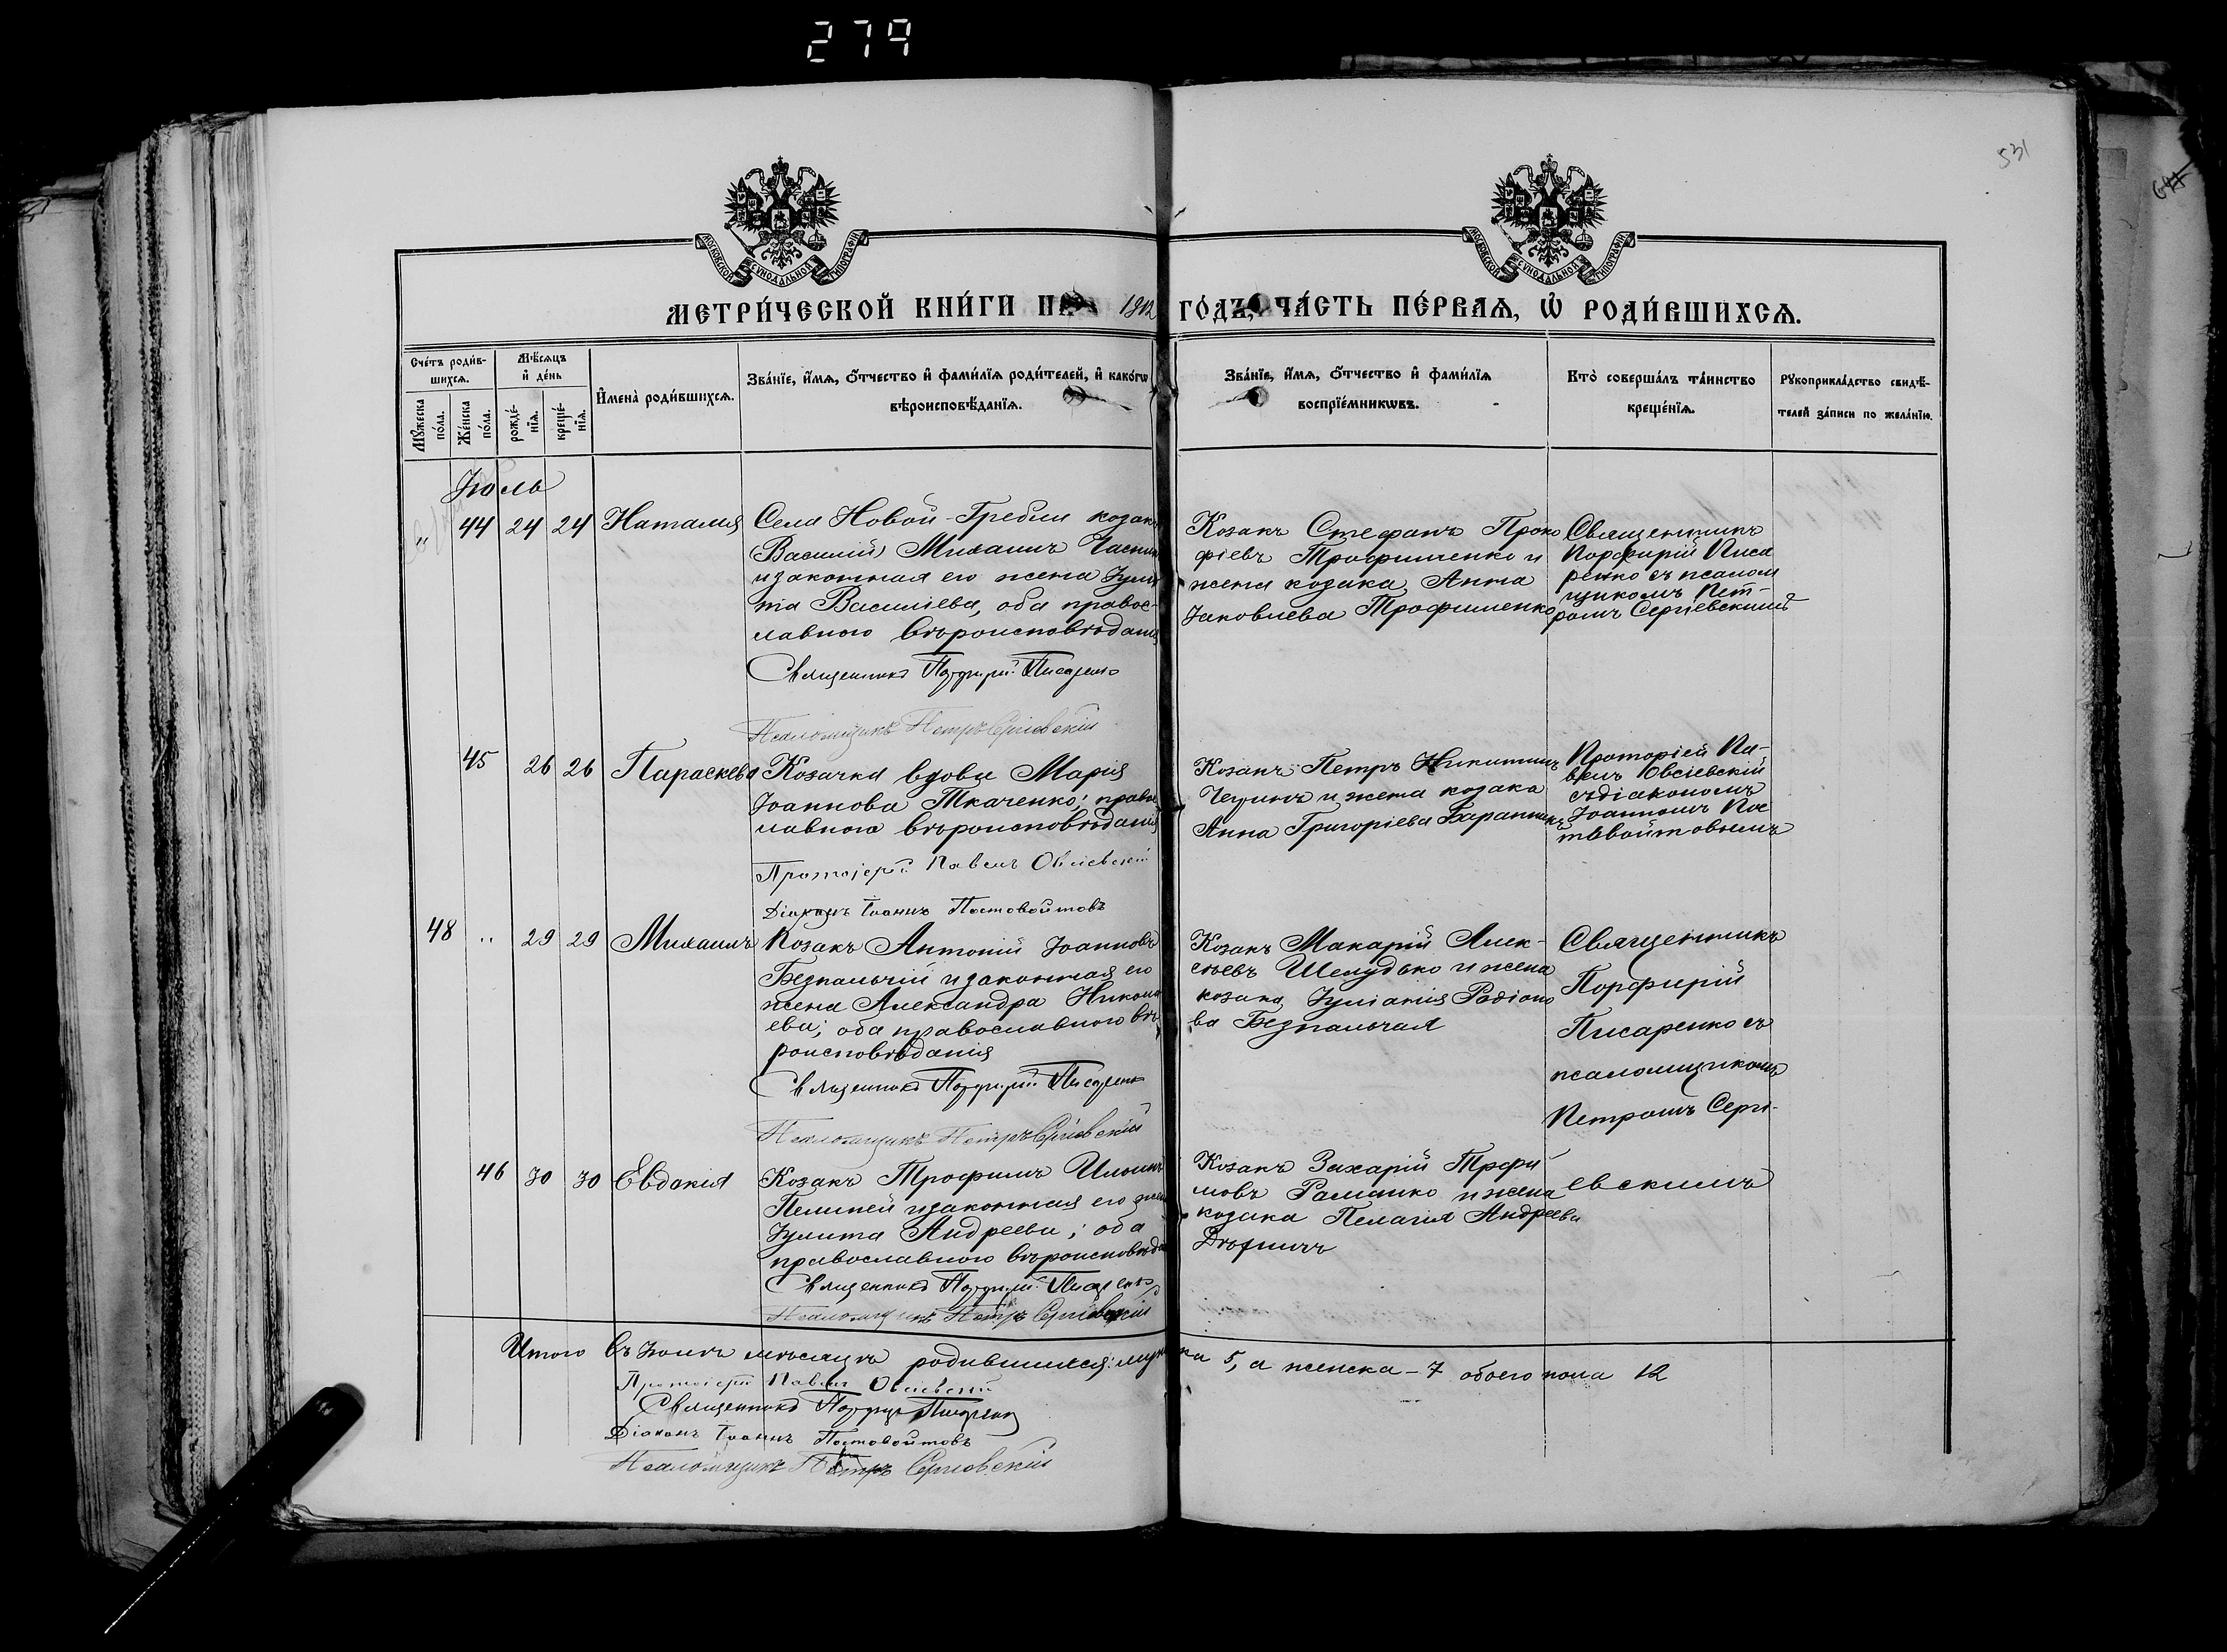 279
531
МОСКОВСКОЙ СѴНОДАЛЬНОЙ ТИПОГРАФІИ
МОСКОВСКОЙ СѴНОДАЛЬНОЙ ТИПОГРАФІИ
МЕТРИ́ЧЕСКОЙ КНИ́ГИ НА 1912 ГО́ДЪ, ЧА́СТЬ ПЕ́РВАѦ, Ѡ҆ РОДИ́ВШИХСѦ.
Сче́тъ роди́в-
шихсѧ.
Мꙋ́жеска по́ла.
Же́нска по́ла.
Мѣ́сѧцъ
и҆ де́нь
рожде́-
нїѧ.
креще́-
нїѧ.
И҆мена̀ роди́вшихсѧ.
Зва́нїе, и҆́мѧ, ѻ҆́тчество и҆ фами́лїѧ роди́телей, и҆ како́гѡ
вѣроисповѣ́данїѧ.
Зва́нїе, и҆́мѧ, ѻ҆́тчество и҆ фами́лїѧ
воспрїе́мникѡвъ.
Кто̀ соверша́лъ та́инство
креще́нїѧ.
Рꙋкоприкла́дство свидѣ́-
телей за́писи по жела́нїю.
Іюль
„ 44 24 24 Наталия
Села Новой-Гребли козакъ
Василій Михаилъ
и законная его жена Іули
та Василіева, оба правос-
лавного вѣроисповѣданія
Священникъ Порфирій Писаренко
Псаломщикъ Петръ Сергіевскій
Козакъ Стефанъ Проко
фіевъ Трофименко и
жена козака Анна
Іаковлева Трофименко
Священникъ
Порфирій Писа
ренко съ псалом
щикомъ Пет-
ромъ Сергіевскимъ
45 26 26 Параскева
Козачка вдова Марія
Іоаннова Ткаченко; правос
лавного вѣроисповѣданія
Протоіерей Павелъ Овсіевскій
Діаконъ Іоаннъ Постовойтовъ
Козакъ Петръ Никитинъ
и жена козака
Анна Григоріева Баранникъ
Проторіей Па-
велъ Овсіевскій
съ діакономъ
Іоанномъ Пос
товойтовымъ
48 „ 29 29 Михаилъ
Козакъ Антоній Іоанновъ
Безпальчій и законная его
жена Александра Никола
ева; оба православного вѣ
роисповѣданія
Священникъ Порфирій Писаренко
Псаломщикъ Петръ Сергіевскій
Козакъ Макарій Алек-
сѣевъ Шелудько и жена
козака Іуліанія Радіоно
ва Безпальчая
Священникъ
Порфирій
Писаренко съ
псаломщикомъ
Петромъ Серги-
евскимъ
46 30 30 Евдокія
Козакъ Трофимъ Ильинъ
и законная его жена
Іулита Андреева; оба
православного вѣроисповѣда
Священникъ Порфирій Писаренко
Псаломщикъ Петръ Сергіевскій
Козакъ Захарій Трофи
мовъ и жена
козака Пелагія Андреева
Итого въ Іюлѣ мѣсяцѣ родившихся: мужеска 5, а женска - 7 обоего пола 12
Протоіерей Павелъ Овсіевскій
Священникъ Порфирій Писаренко
Діаконъ Іоаннъ Постовойтовъ
Псаломщикъ Петръ Сергіевскій